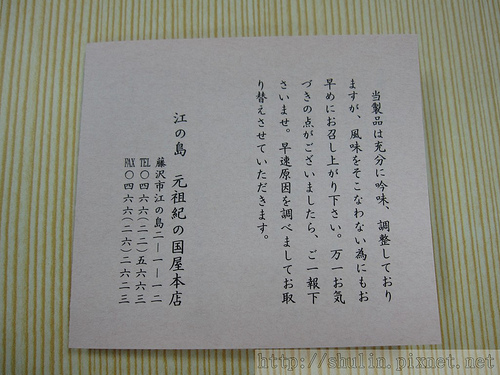 当製品は充分に吟味、調整しており
ますが、風味をそこなわない為にもお
早めにお召し上がり下さい。万一お気
づきの点がございましたら、ご一報下
さいませ。早速原因を調べましてお取
り替えさせていただきます。
江の島 元祖紀の国屋本店
藤沢市江の島二―一―一二
TEL〇四六六(二二)五六六三
FAX〇四六六(二六)二六二三
http://shulin.pixnet.net